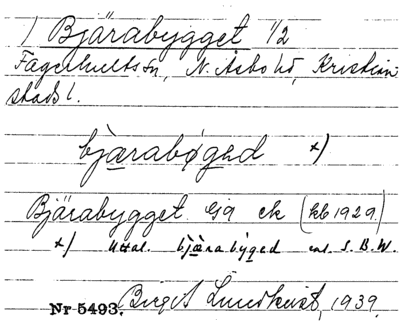 1) Bjärabygget 1/2
Fagerhults sn, N. Åsbo hd, Kristian-
stads l.
bjærabøgəd x)
Bjärabygget ck (kb 1929.)
x) Uttal. bjærabygəd enl. S. B. W.
Nr 5493. Birgit Lundkvist, 1939.